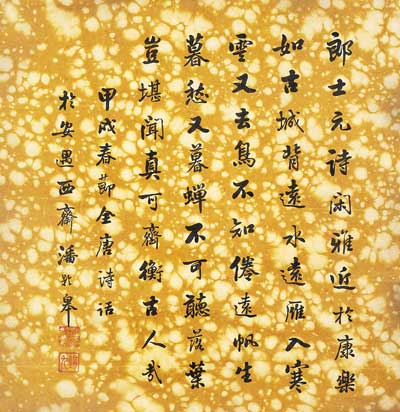 郎士元詩閑雅近於康樂
如古城背遠水遠雁入寒
雲又去鳥不知倦遠帆生
暮愁又暮蟬不可聽落葉
豈堪聞真可齊衡古人哉
甲戌春節全唐詩話
於安遇西齋潘齡皋